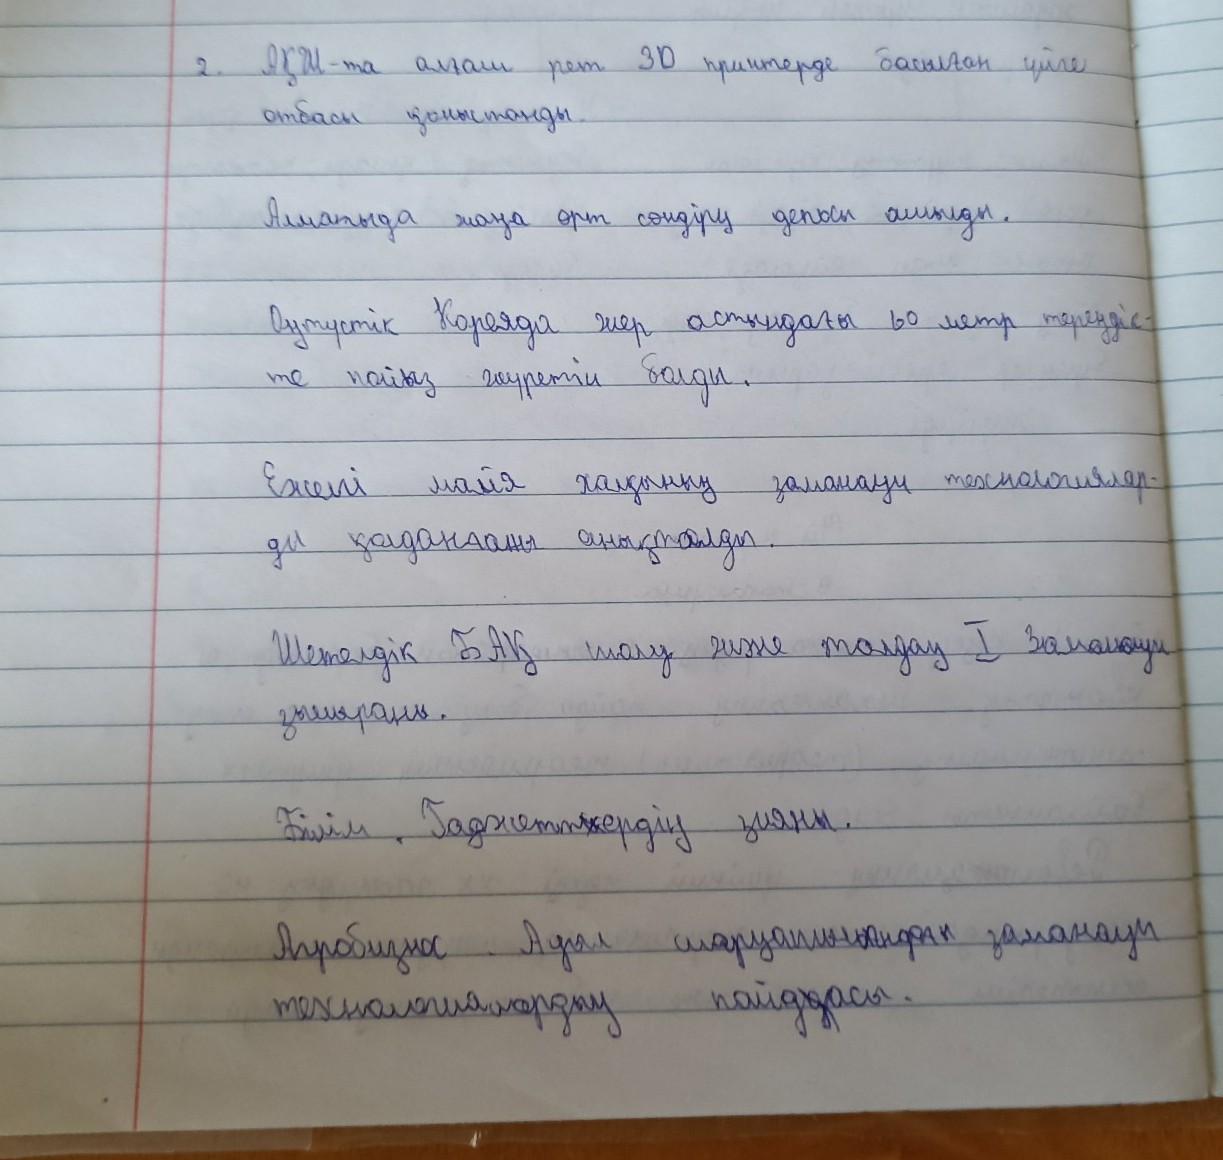 2. АҚШ-та алғаш рет 3D принтерде басылған үйге
отбасы қоныстанды.
Алматыда жаңа өрт сөндіру депосы ашылды.
Оңтүстік Кореяда жер астындағы 60 метр тереңдік-
те пойыз жүретін болды.
Ежелгі майя халқының заманауи технологиялар-
ды қолданғаны анықталды.
Шетелдік БАҚ шолу және талдау I Заманауи
зымыраны.
Білім. Гаджеттердің зияны.
Агробизнес. Ауыл шаруашылығындағы заманауи
технологиялардың пайдасы.